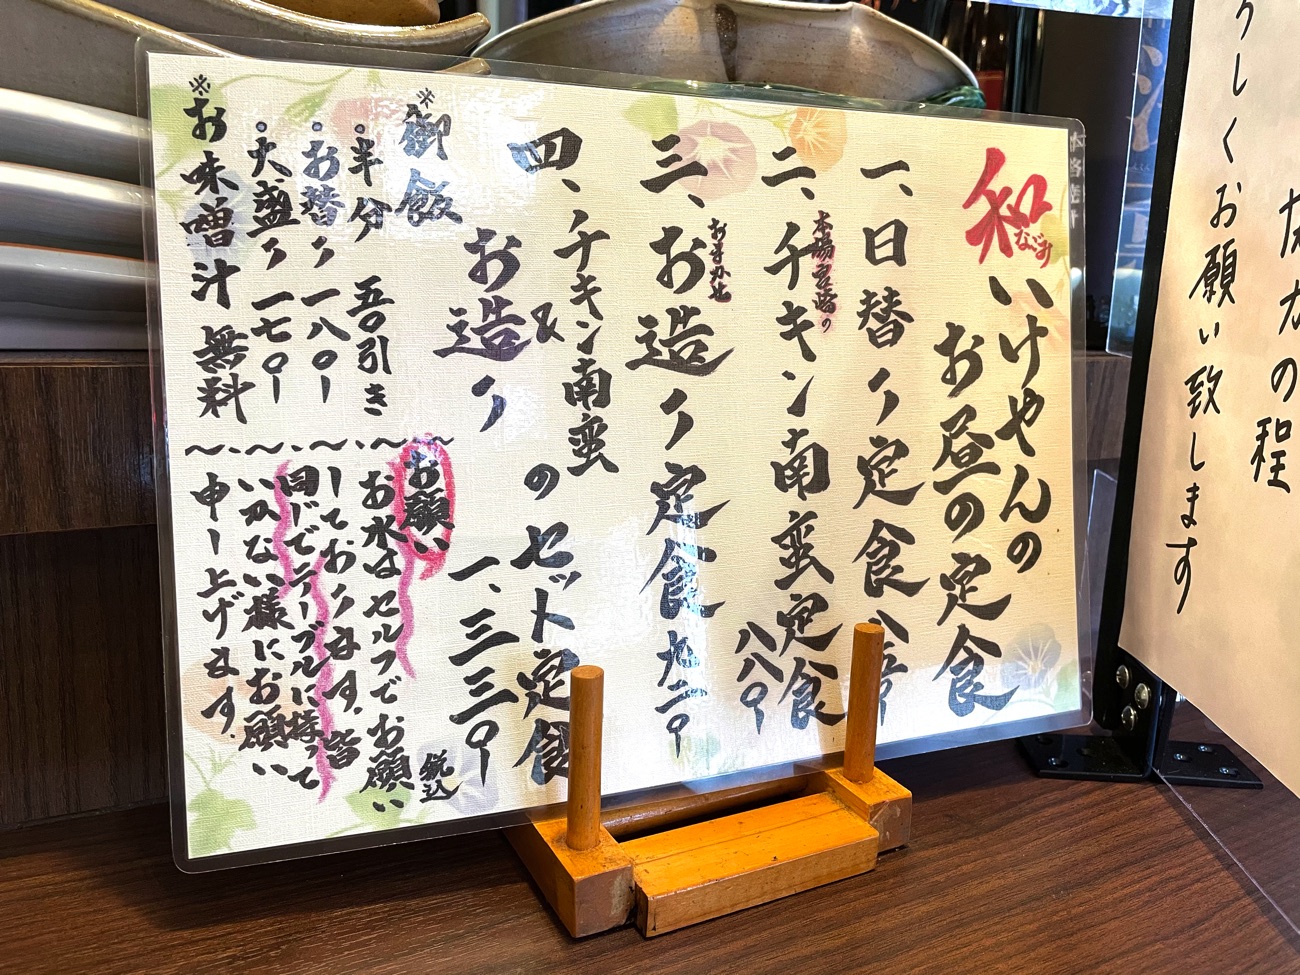 和なごみ
いけやんの
お昼の定食
一、日替り定食
本場宮崎の
二、チキン南蛮定食
八八〇
おまかせ
三、お造り定食 九二〇
四、チキン南蛮
&
お造り
のセット定食
一、三三〇
税込
※御飯
・半分 五〇引き
・お替り 一八〇
・大盛り 一七〇
※お味噌汁 無料
お願い
お水はセルフでお願い
しております。皆
同じでテーブルに持って
いかない様にお願い
申し上げます。
しくお願い致します
の程